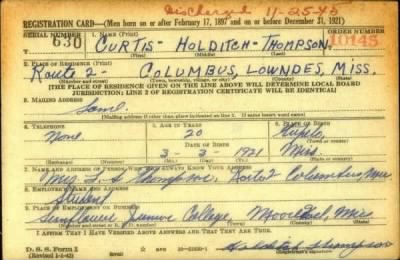 Discharged 11-25-45
REGISTRATION CARD—(Men born on or after February 17, 1897 and on or before December 31, 1921)
SERIAL NUMBER 1. NAME (Print) ORDER NUMBER
630 CURTIS - HOLDITCH - THOMPSON. 10145
(First) (Middle) (Last)
2. PLACE OF RESIDENCE (Print)
Route 2 - COLUMBUS, LOWNDES, MISS.
(Number and street) (Town, township, village, or city) (County) (State)
[THE PLACE OF RESIDENCE GIVEN ON THE LINE ABOVE WILL DETERMINE LOCAL BOARD
JURISDICTION; LINE 2 OF REGISTRATION CERTIFICATE WILL BE IDENTICAL]
3. MAILING ADDRESS
Same.
[Mailing address if other than place indicated on line 2. If same insert word same]
4. TELEPHONE 5. AGE IN YEARS 6. PLACE OF BIRTH
None 20 Tupelo
DATE OF BIRTH (Town or county)
3 - 3 - 1921 Miss.
(Exchange) (Number) (Mo.) (Day) (Yr.) (State or country)
7. NAME AND ADDRESS OF PERSON WHO WILL ALWAYS KNOW YOUR ADDRESS
Thompson, Route 2 Columbus, Miss
8. EMPLOYER'S NAME AND ADDRESS
Student
9. PLACE OF EMPLOYMENT OR BUSINESS
Sunflower Junior College, Moorhead, Miss
(Number and street or R. F. D. number) (Town) (County) (State)
I AFFIRM THAT I HAVE VERIFIED ABOVE ANSWERS AND THAT THEY ARE TRUE.
D. S. S. Form 1
(Revised 1-1-42) Holditch Thompson
(Registrant's signature)